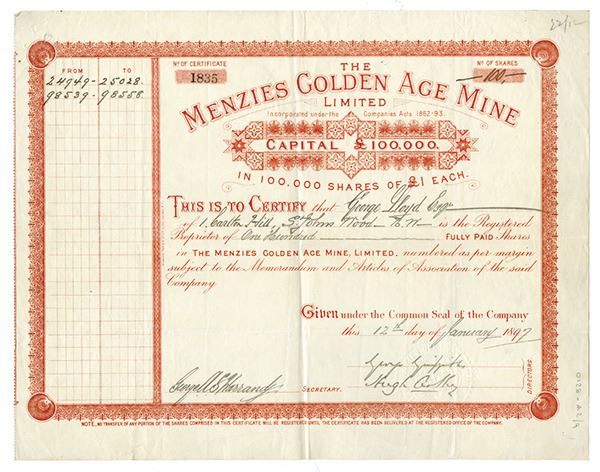 22/12
FROM TO
24949 - 25028
98539 - 98558
Nº OF CERTIFICATE
1835
Nº OF SHARES
—100—
THE
MENZIES GOLDEN AGE MINE
LIMITED
Incorporated under the Companies Acts 1862-93.
CAPITAL £100.000.
IN 100.000 SHARES OF £1 EACH.
THIS IS TO CERTIFY that George Lloyd Esqre
of 1. Carlton Hill, St Johns Wood N.W. is the Registered
Proprietor of One Hundred FULLY PAID Shares
in THE MENZIES GOLDEN AGE MINE, LIMITED, numbered as per margin
subject to the Memorandum and Articles of Association of the said
Company
Given under the Common Seal of the Company
this 12th day of January 1897
George Griffiths
Hugh
DIRECTORS.
SECRETARY.
NOTE, NO TRANSFER OF ANY PORTION OF THE SHARES COMPRISED IN THIS CERTIFICATE WILL BE REGISTERED UNTIL THE CERTIFICATE HAS BEEN DELIVERED AT THE REGISTERED OFFICE OF THE COMPANY.